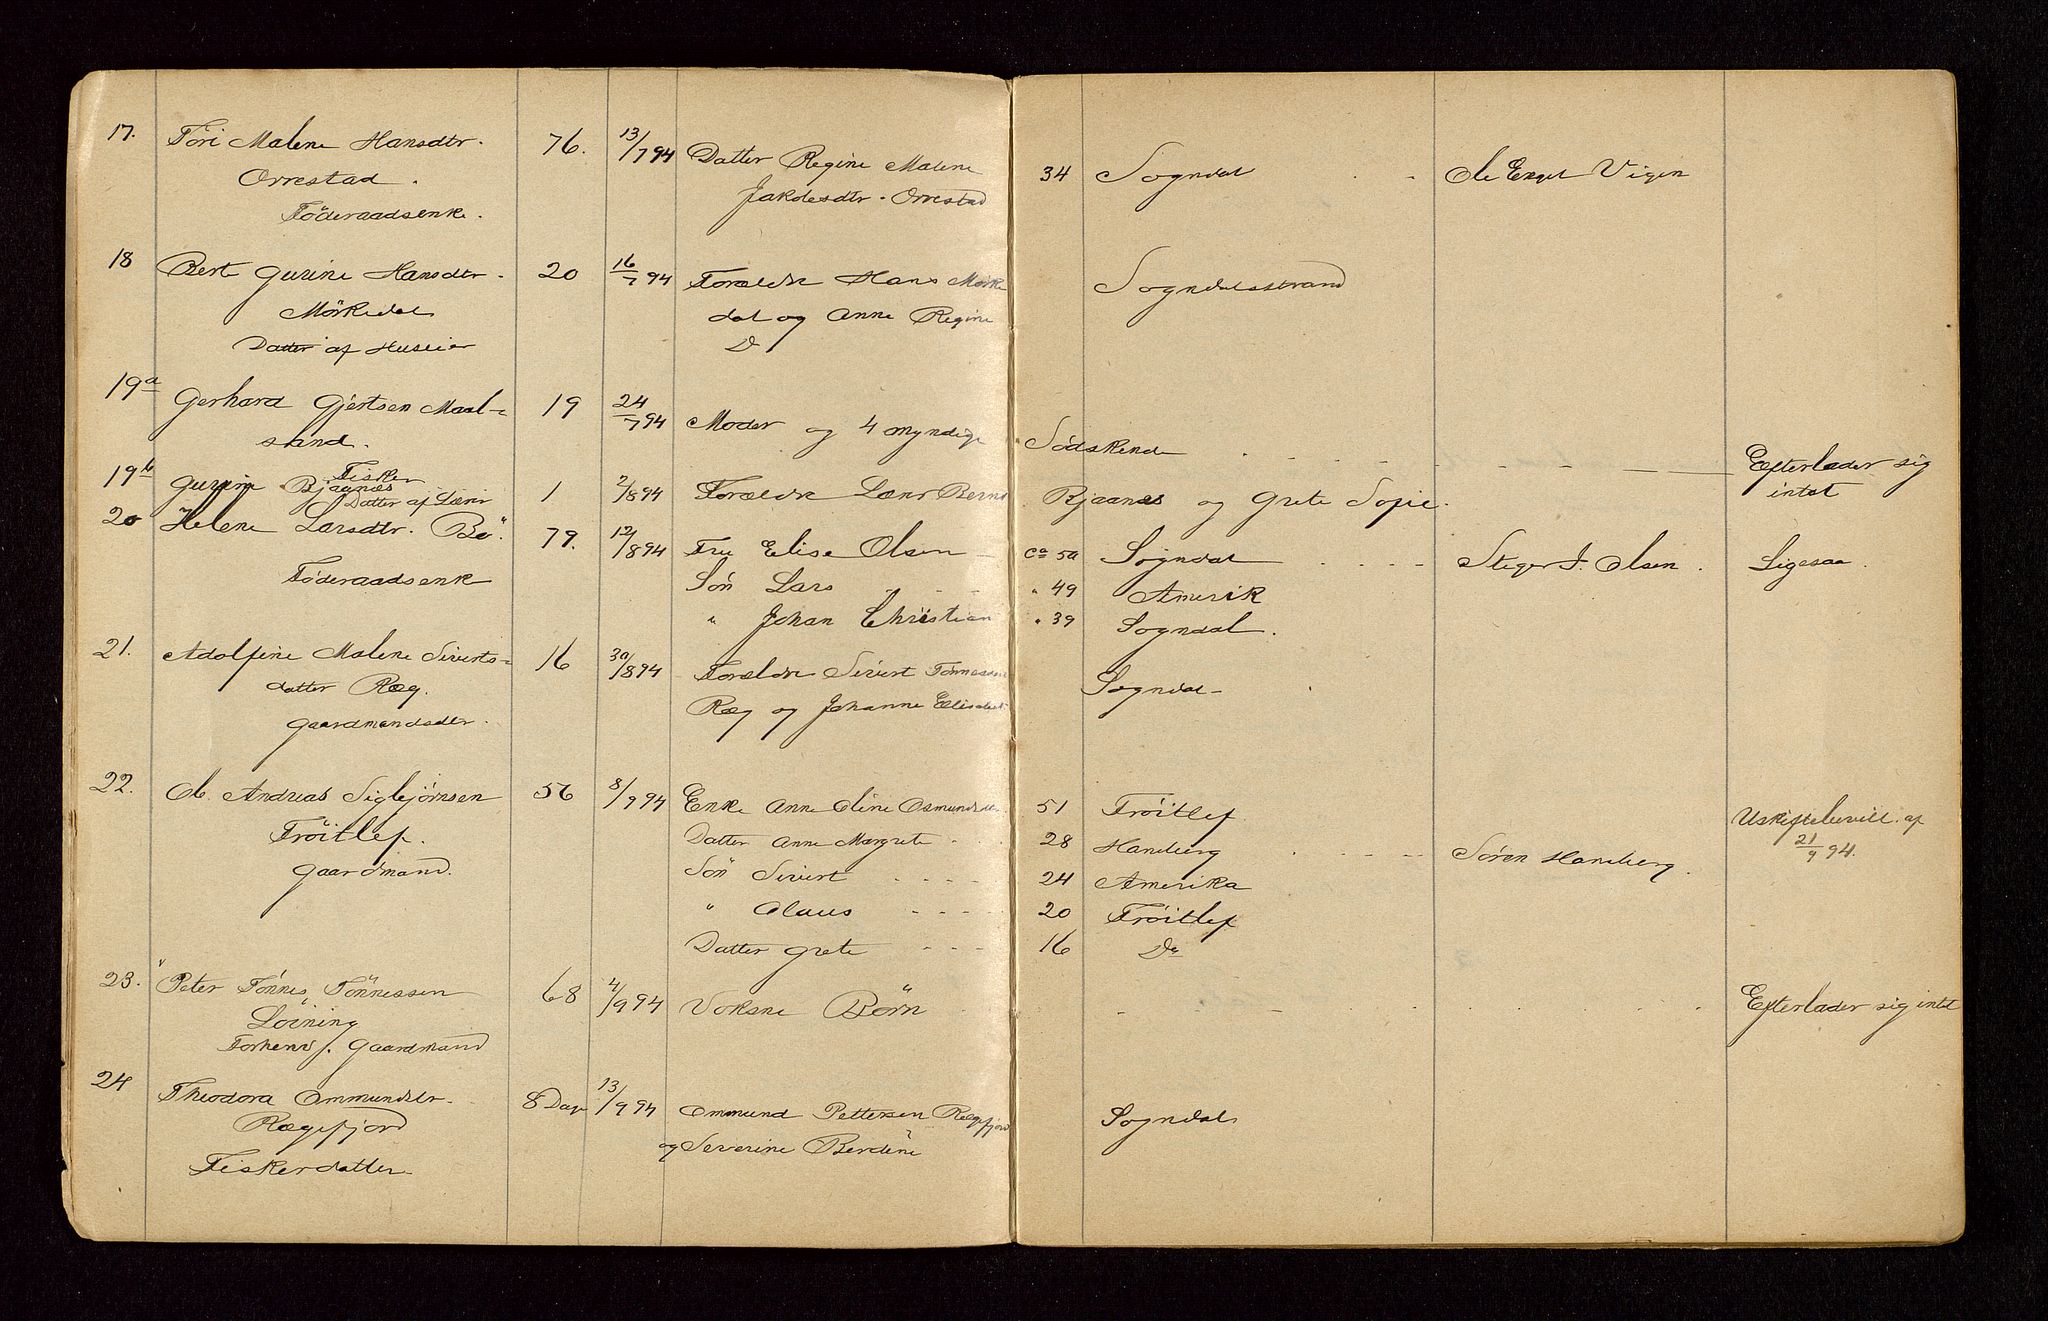 17. Töri Malene Hansdtr. 76. 13/7 94 Datter Regine Malene 34 Sogndal Ole Enget Vigen
Orrestad. Jakobsdtr. Orrestad
Föderaadsenke.
18 Berte Gurine Hansdtr. 20 16/7 94 Forældre Hans Mörke Sogndalsstrand
Mörkedal dal og Anne Regine
Datter af Huseier Do
19a Gerhard Gjertsen Maal- 19 24/7 94 Moder og 4 myndige Södskende Efterlader sig
sand. intet
Fisker
19b Gurine Bjaanes 1 2/8 94 Forældre Lænr Bernt Bjaanes og Grete Sofie.
Datter af Lænr
20 Helene Larsdtr. Bö. 79. 12/8 94 Fru Elise Olsen ca 50 Sogndal Stiger J. Olsen. Ligesaa.
Föderaadsenk Sön Lars " 49 Amerik
" Johan Christian " 39 Sogndal.
21. Adolfine Malene Siverts- 16 30/8 94 Forældre Sivert Tönnessen Sogndal
datter Ræg. Ræg og Johanne Elisabet
Gaardmandsdtr.
22. Ole Andreas Sigbjörnsen 56 8/9 94 Enke Anne Oline Osmundsdtr 51 Tröitlef Uskiftebevill. af
Tröitlef. Datter Anne Margrete 28 Hanberg Sören Hanberg. 21/9 94.
Gaardmand. Sön Sivert 24 Amerika
" Olaus 20 Tröitlef
Datter Grete 16 Do
23. Peter Tönnes Tönnessen 68 4/9 94 Voksne Börn Efterlader sig intet
Löining
Forhenv. Gaardmand
24 Theodora Ommundsdtr. 8 Dage 13/9 94 Ommund Pettersen Rægefjord Sogndal
Rægefjord og Severine Berdine
Fiskerdatter